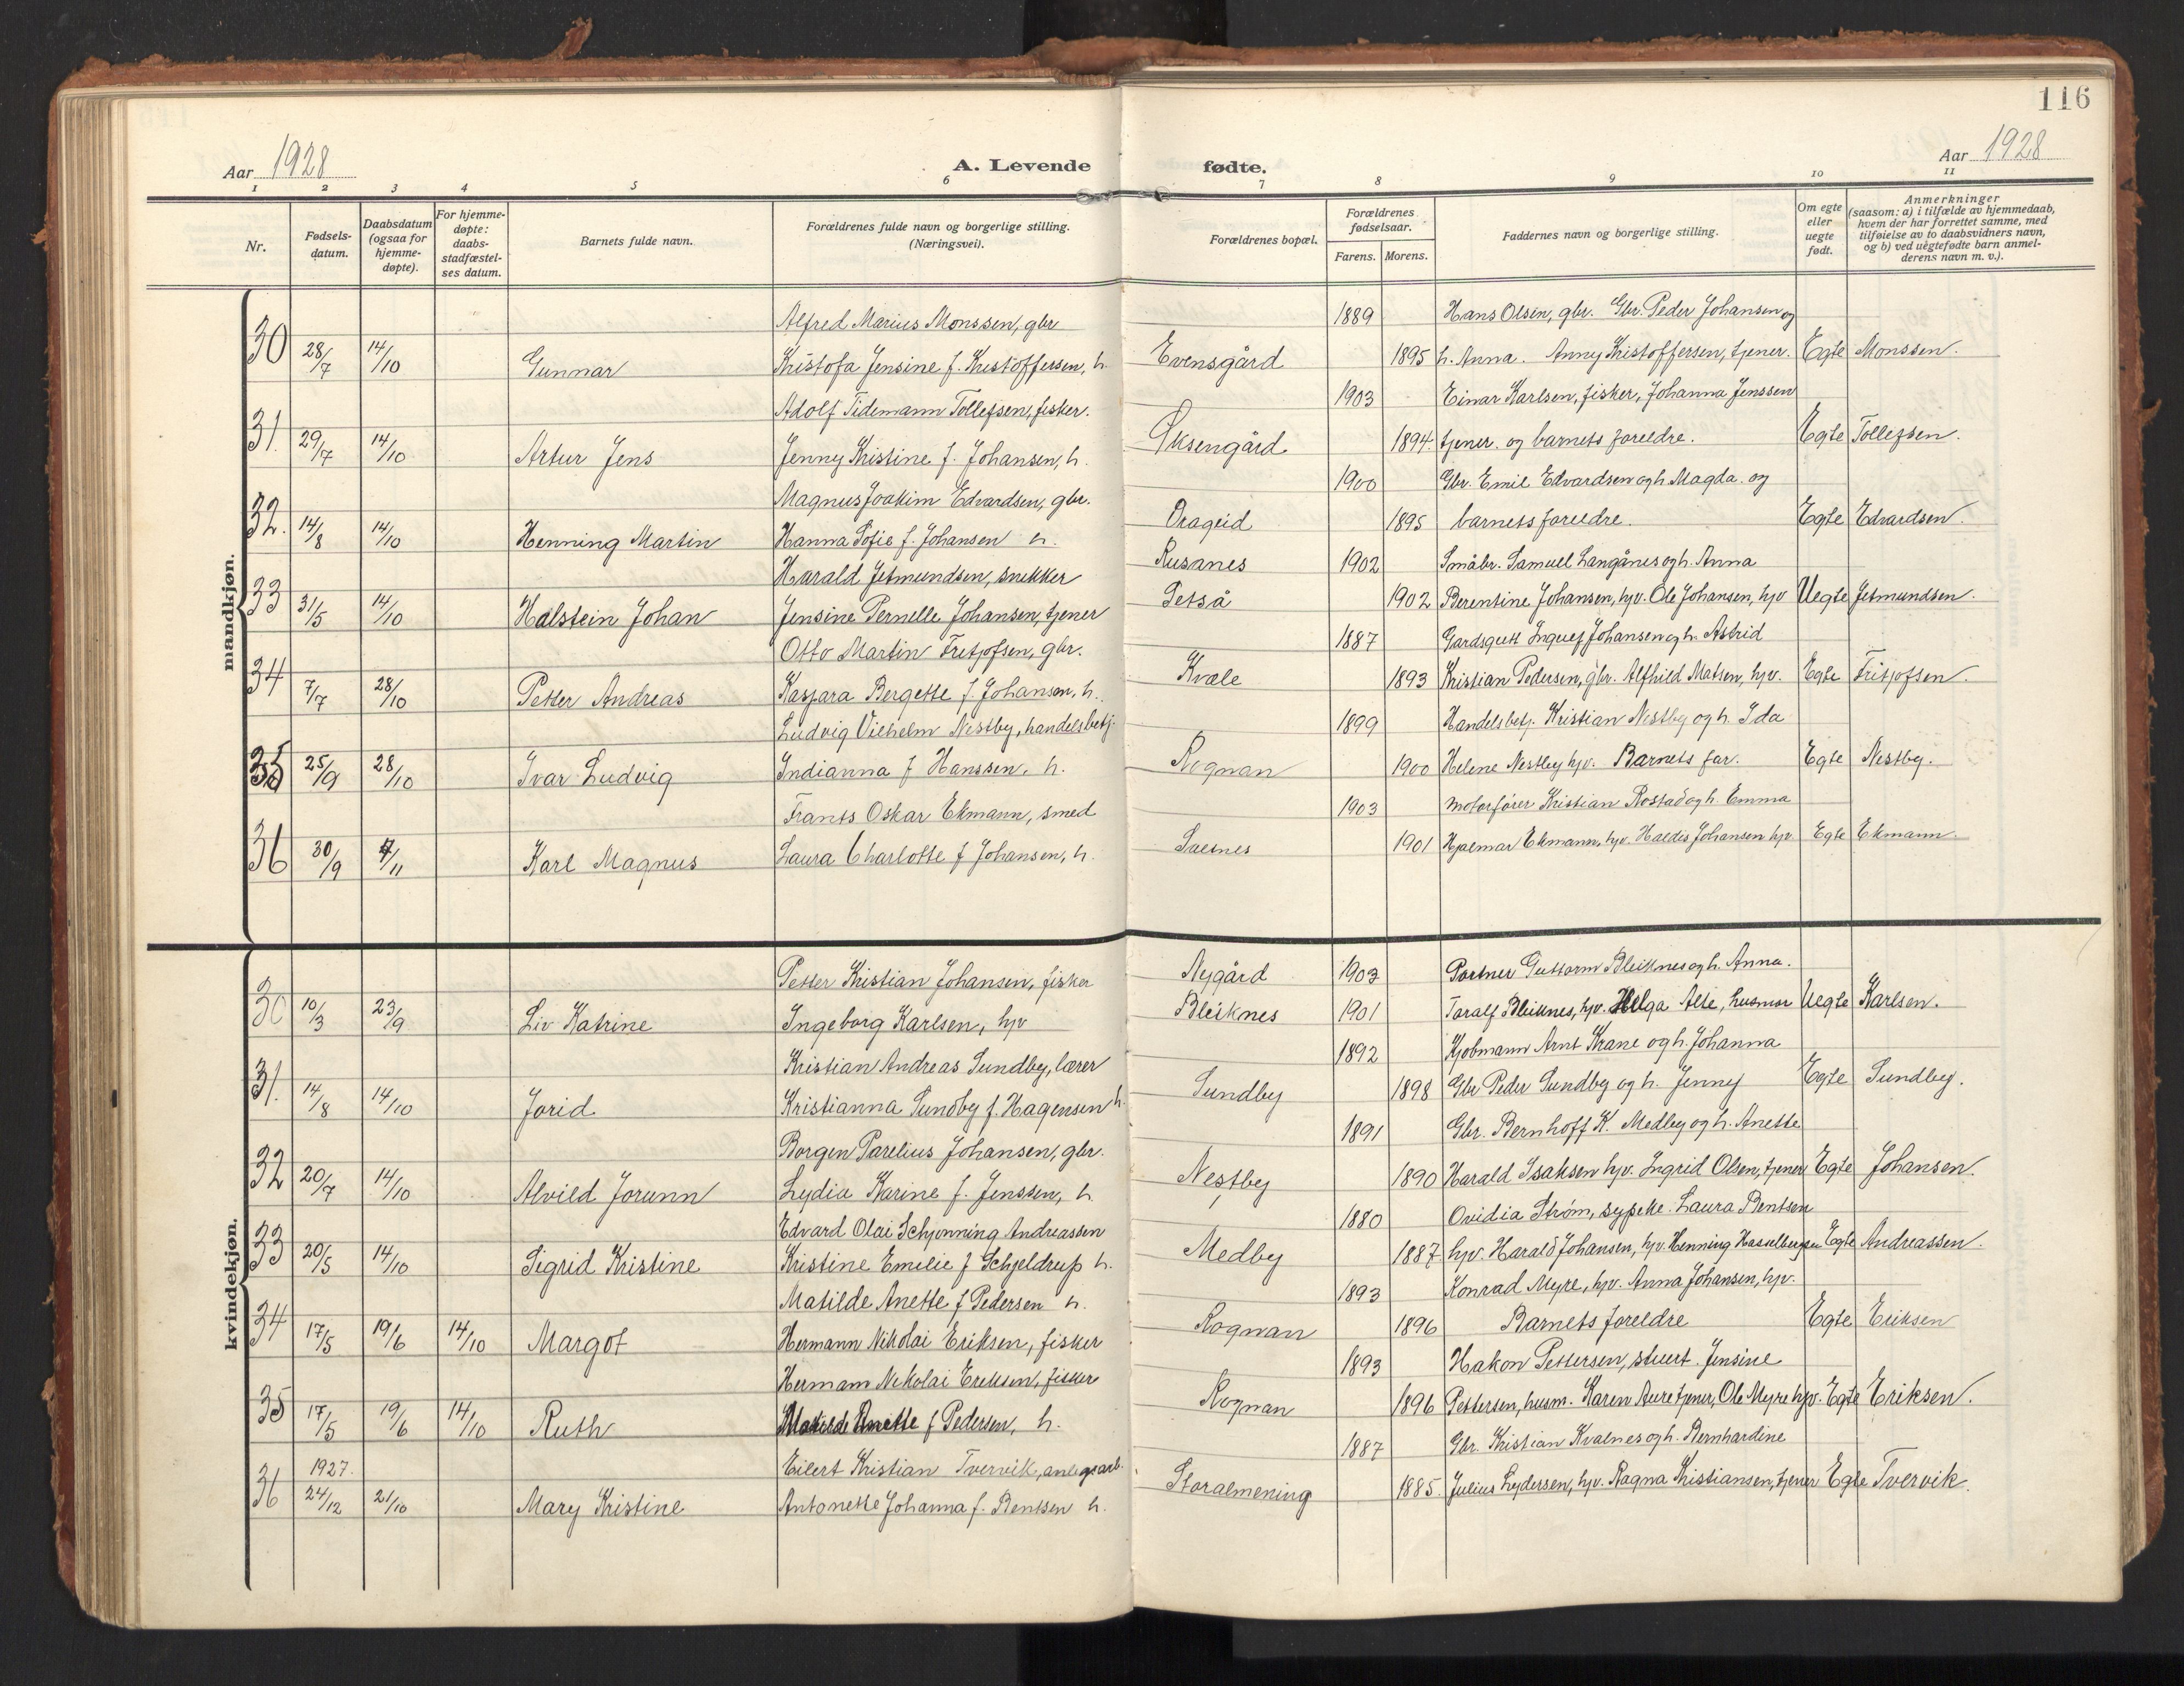 116
Aar 1928
A. Levende
fødte.
Aar 1928
1 2 3 4 5 6 7 8 9 10 11
Nr.
Fødsels-
datum.
Daabsdatum
(ogsaa for
hjemme-
døpte).
For hjemme-
døpte:
daabs-
stadfæstel-
ses datum.
Barnets fulde navn.
Forældrenes fulde navn og borgerlige stilling.
(Næringsvei).
Forældrenes bopæl.
Forældrenes
fødselsaar.
Farens. Morens.
Faddernes navn og borgerlige stilling.
Om egte
eller
uegte
født.
Anmerkninger
(saasom: a) i tilfælde av hjemmedaab,
hvem der har forrettet samme, med
tilføielse av to daabsvidners navn,
og b) ved uegtefødte barn anmel-
derens navn m. v.).
mandkjøn.
Alfred Marius Monssen, gbr 1889 Hans Olsen, gbr. Gbr. Peder Johansen og
30 28/7 14/10 Gunnar Kristofa Jensine f. Kristoffersen, h. Evensgård 1895 h. Anna. Anny Kristoffersen, tjener. Egte Monssen.
Adolf Tidemann Tollefsen, fisker. 1903 Einar Karlsen, fisker, Johanna Jenssen
31. 29/7 14/10 Artur Jens Jenny Kristine f. Johansen, h. Øksengård 1894. tjener. og barnets foreldre. Egte Tollefsen.
Magnus Joakim Edvardsen, gbr. 1900 Gbr. Emil Edvardsen og h. Magda. og
32. 14/8 14/10 Henning Martin Hanna Sofie f. Johansen h. Drageid 1895 barnets foreldre. Egte Edvardsen.
Harald Jetmundsen, snekker Rusanes 1902 Småbr. Samuel Langånes og h. Anna
33 31/5 14/10 Halstein Johan Jensine Pernelle Johansen, tjener Setså 1902 Berentine Johansen, hjv. Ole Johansen, hjv Uegte Jetmundsen.
Otto Martin Fritjofsen, gbr. 1887 Gardsgutt Johansen og h. Astrid
34 7/7 28/10 Petter Andreas Kaspara Bergette f. Johansen, h. Kvæle 1893 Kristian Pedersen, gbr. Alfhild Matsen, hjv. Egte Fritjofsen.
Ludvig Vilhelm Nestby, handelsbetj. 1899 Handelsbetj. Kristian Nestby og h. Ida
35 25/9 28/10 Ivar Ludvig Indianna f Hanssen. h. Rognan 1900 Helene Nestby hjv. Barnets far. Egte Nestby.
Frants Oskar Ekmann, smed 1903 Motorfører Kristian Rostad og h. Emma
36 30/9 4/11 Karl Magnus Laura Charlotte f Johansen, h. Saksnes 1901 Hjalmar Ekmann, hjv. Haldis Johansen hjv Egte Ekmann.
kvindekjøn.
Petter Kristian Johansen, fisker Nygård 1903 Portner Guttorm Bleiknes og h. Anna.
30 10/3 23/9 Liv Katrine Ingeborg Karlsen, hjv Bleiknes 1901 Toralf Bleiknes, hjv. Helga Alte, husmor Uegte Karlsen.
Kristian Andreas Sundby, lærer 1892 Kjøbmann Arnt Krane og h. Johanna
31. 14/8 14/10 Jorid Kristianna Sundby f. Hagensen h. Sundby 1898 Gbr Peder Sundby og h. Jenny Egte Sundby.
Borgen Parelius Johansen, gbr. 1891 Gbr. Bernhoff K. Medby og h. Anette
32 20/7 14/10 Alvild Jorunn Lydia Karine f. Jenssen, h. Nestby 1890 Harald Isaksen hjv. Ingrid Olsen, tjener Egte Johansen.
Edvard Olai Schjønning Andreassen 1880 Ovidia Strøm, sypike. Laura Bentsen
33 20/5 14/10 Sigrid Kristine Kristine Emilie f Schjeldrup h. Medby 1887 hjv. Harald Johansen, hjv. Henning Hasselbergsen Egte Andreassen.
Matilde Anette f Pedersen h. 1893 Konrad Myre, hjv. Anna Johansen, hjv.
34 17/5 19/6 14/10 Margot Hermann Nikolai Eriksen, fisker Rognan 1896 Barnets foreldre Egte Eriksen
Hermann Nikolai Eriksen, fisker 1893 Hakon Pettersen, stuert. Jensine
35 17/5 19/6 14/10 Ruth Matilde Anette f Pedersen, h. Rognan 1896 Pettersen, husm. Karen Aure tjener, Ole Myre hjv. Egte Eriksen.
1927. Eilert Kristian Tvervik, anlegsarb. 1887 Gbr. Kristian Kvalnes og h. Bernhardine
36 24/12 21/10 Mary Kristine Antonette Johanna f. Bentsen h. Storalmening 1885. Julius Lydersen, hjv. Ragna Kristiansen, tjener Egte Tvervik.